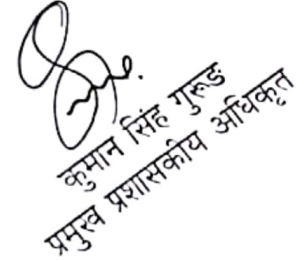 कुमान सिंह गुरूङ
प्रमुख प्रशासकीय अधिकृत